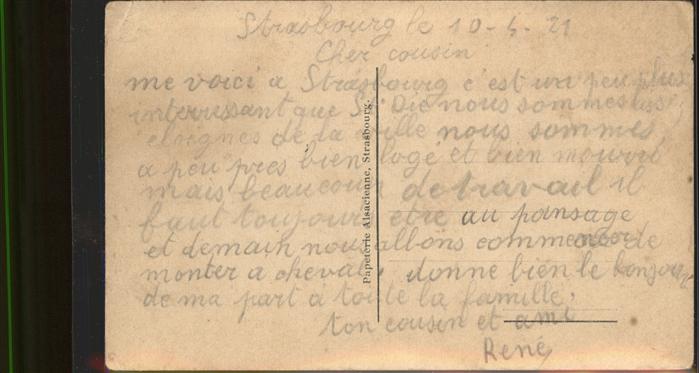 Strasbourg le 10-4-21
Cher cousin
me voici a Strasbourg c'est un peu plus
interressant que St Dié nous sommes
eloignes de la ville nous sommes
a peu pres bien logé et bien nourri
mais beaucoup de travail il
faut toujours etre au pansage
et demain nous allons commencer de
monter a cheval, donne bien le bonjour
de ma part à toute la famille,
ton cousin et ami
René
Papeterie Alsacienne, Strasbourg.